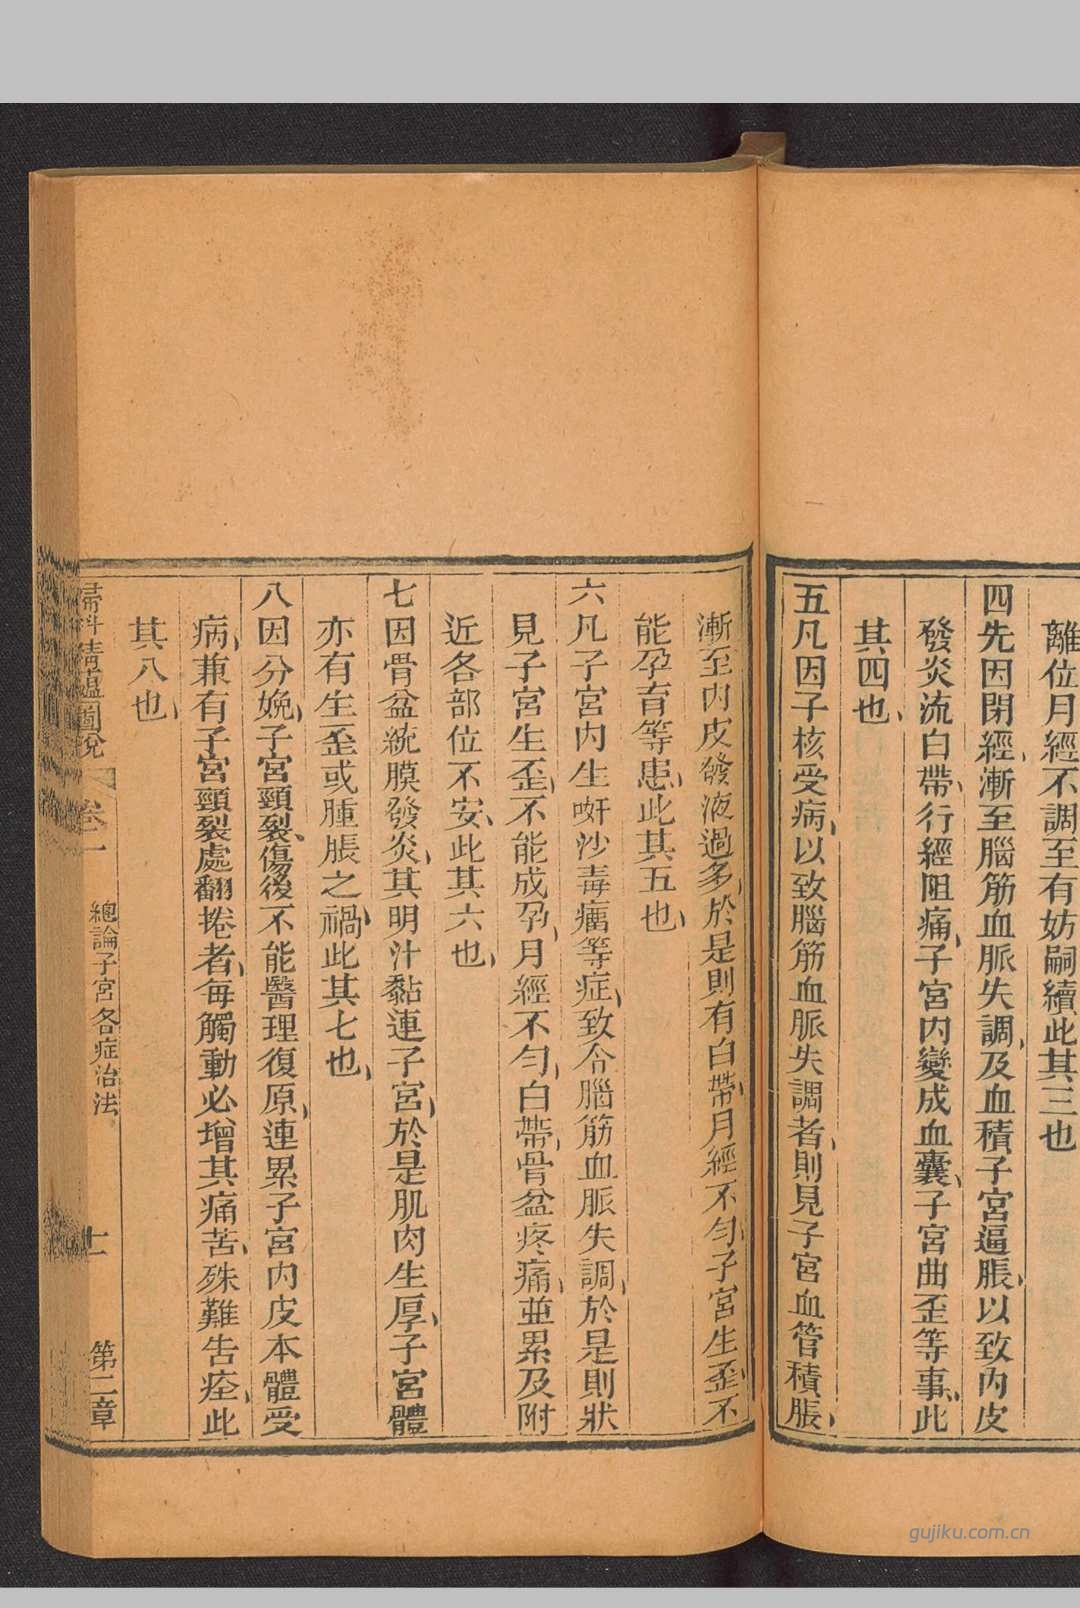 離位月經不調至有妨嗣續此其三也
四先因閉經漸至腦筋血脈失調及血積子宮逼脹以致內皮
發炎流白帶行經阻痛子宮內變成血囊子宮曲歪等事此
其四也
五凡因子核受病以致腦筋血脈失調者則見子宮血管積脹
漸至內皮發液過多於是則有白帶月經不勻子宮生歪不
能孕育等患此其五也
六凡子宮內生啹沙毒癘等症致令腦筋血脈失調於是則狀
見子宮生歪不能成孕月經不勻白帶骨盆疼痛並累及附
近各部位不安此其六也
七因骨盆統膜發炎其明汁黏連子宮於是肌肉生厚子宮體
亦有生歪或腫脹之禍此其七也
八因分娩子宮頸裂傷後不能醫理復原連累子宮內皮本體受
病兼有子宮頸裂處翻捲者每觸動必增其痛苦殊難告痊此
其八也
婦科精蘊圖說 卷二 總論子宮各症治法 十一 第二章
gujiku.com.cn